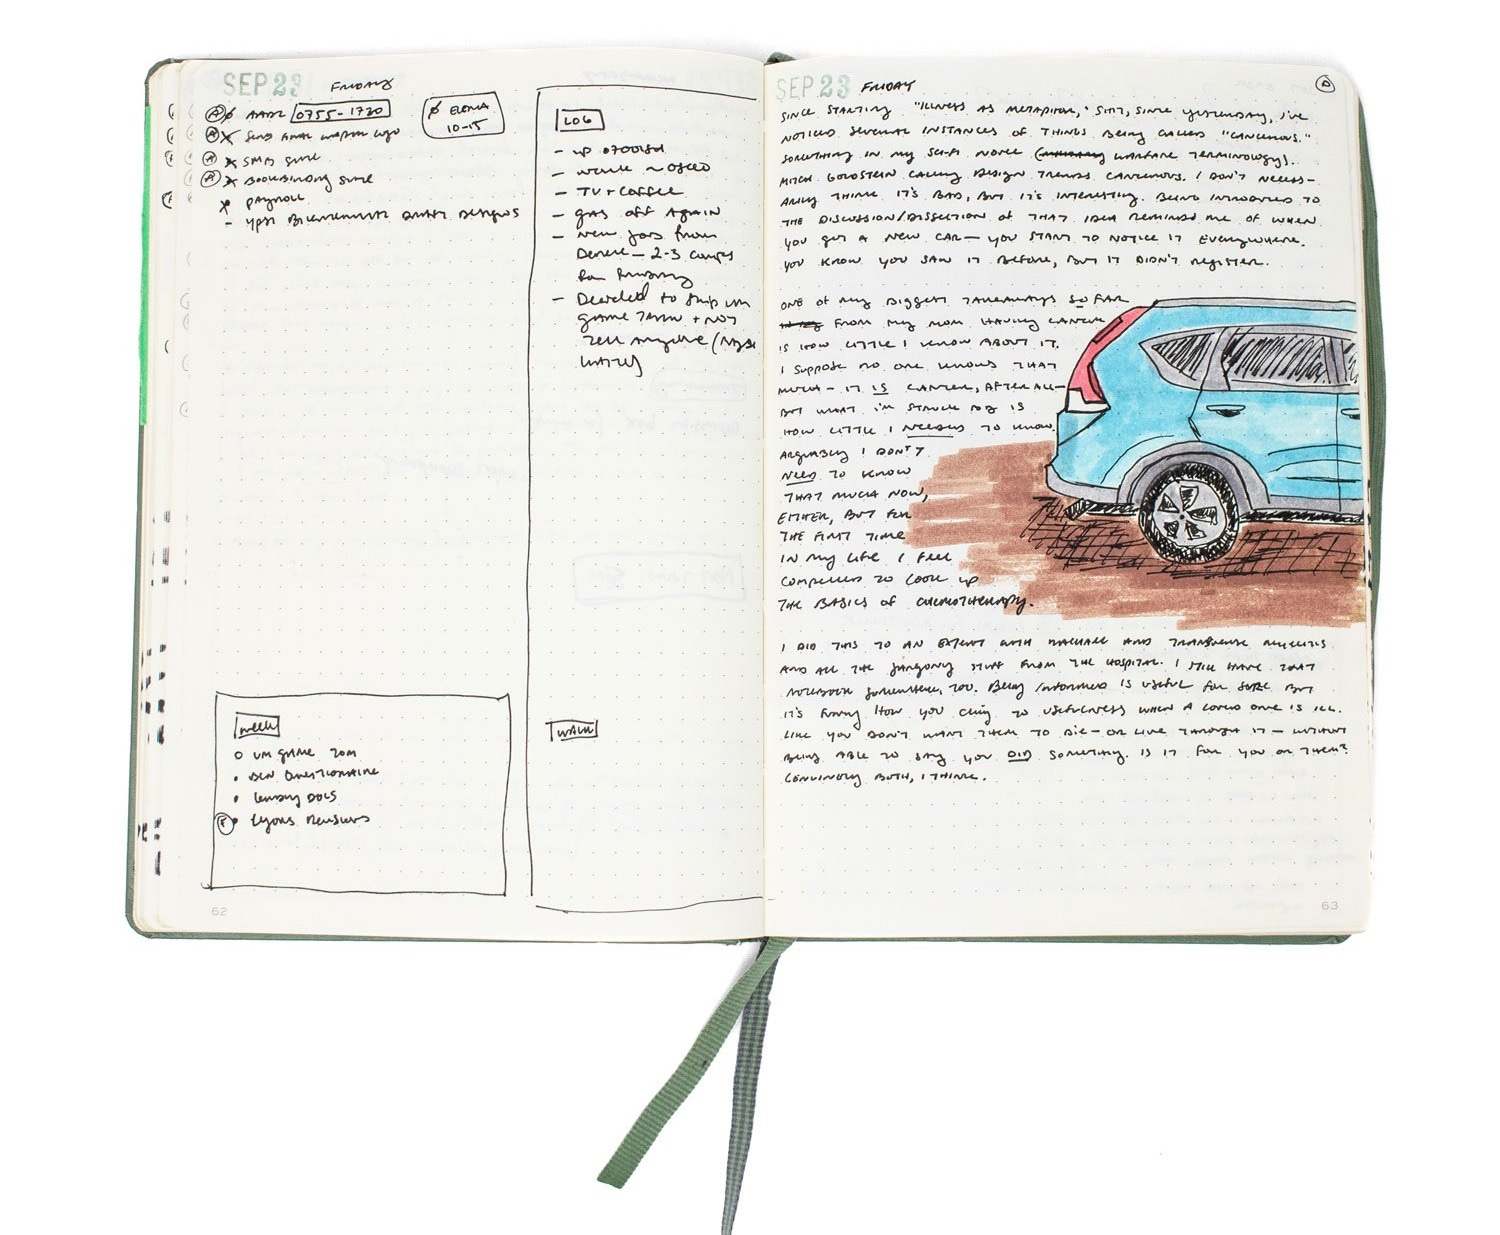 SEP 23 FRIDAY
0755-1730
ELENA
10-15
SEND
SMBS
BOOKBINDING
PAYROLL
- YPSI BICENTENNIAL DRAFT DESIGNS
LOG
- UP @ 0700ISH
- WALK ~ 0800
- TV + COFFEE
- GAS OFF AGAIN
- NEW JOBS FROM
DENELE - 2-3 COMPS
FOR PRINTING
- DECIDED TO SKIP UM
GAME TMRW + NOT
TELL ANYONE (MAYBE
WALK
WEEK
O UM GAME TOM
• BCN QUESTIONNAIRE
• LENDING DOCS
LYONS REVISIONS
62
SEP 23 FRIDAY
SINCE STARTING "ILLNESS AS METAPHOR," SO, SINCE YESTERDAY, I'VE
NOTICED SEVERAL INSTANCES OF THINGS BEING CALLED "CANCEROUS."
SOMETHING IN MY SCI-FI NOVEL (WARFARE TERMINOLOGY).
MITCH GOLDSTEIN CALLING DESIGN TRENDS CANCEROUS. I DON'T NECESS-
ARILY THINK IT'S BAD, BUT IT'S INTERESTING. BEING INTRODUCED TO
THE DISCUSSION/DISSECTION OF THAT IDEA REMINDS ME OF WHEN
YOU GET A NEW CAR — YOU START TO NOTICE IT EVERYWHERE.
YOU KNOW YOU SAW IT BEFORE, BUT IT DIDN'T REGISTER.
ONE OF MY BIGGEST TAKEAWAYS SO FAR
FROM MY MOM HAVING CANCER
IS HOW LITTLE I KNOW ABOUT IT.
I SUPPOSE NO ONE KNOWS THAT
MUCH — IT IS CANCER, AFTER ALL —
BUT WHAT I'M STRUCK BY IS
HOW LITTLE I NEEDED TO KNOW.
ARGUABLY I DON'T
NEED TO KNOW
THAT MUCH NOW,
EITHER, BUT FOR
THE FIRST TIME
IN MY LIFE I FEEL
COMPELLED TO LOOK UP
THE BASICS OF CHEMOTHERAPY.
I DID THIS TO AN EXTENT WITH AND TRANSVERSE MYELITIS
AND ALL THE JARGONY STUFF FROM THE HOSPITAL. I STILL HAVE THAT
NOTEBOOK SOMEWHERE, TOO. BEING INFORMED IS USEFUL FOR SURE BUT
IT'S FUNNY HOW YOU CLING TO USEFULNESS WHEN A LOVED ONE IS ILL.
LIKE YOU DON'T WANT THEM TO DIE — OR LIVE THROUGH IT — WITHOUT
BEING ABLE TO SAY YOU DID SOMETHING. IS IT FOR YOU OR THEM?
GENUINELY BOTH, I THINK.
63